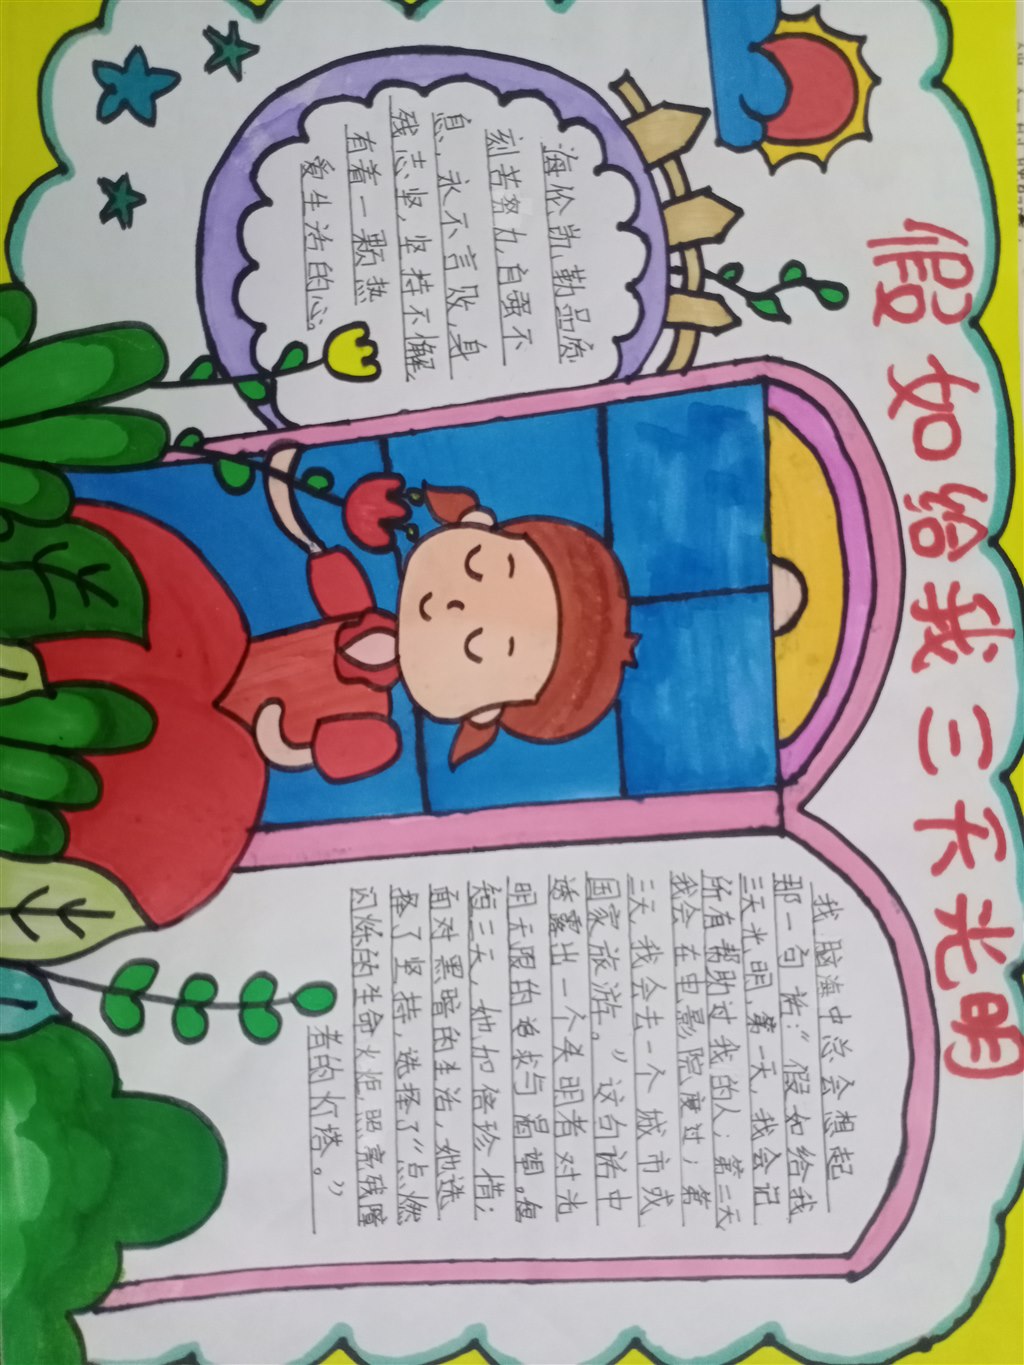 假如给我三天光明
海伦凯勒品质
刻苦努力,自强不
息,永不言败,身
残志坚,坚持不懈,
有着一颗热
爱生活的心。
我脑海中总会想起
那一句话:“假如给我
三天光明,第一天,我会记
所有帮助过我的人;第二天
我会在电影院度过;第
三天,我会去一个城市或
国家旅游。”这句话中
透露出一个失明者对光
明无限的追求与渴望。短
短三天,她加倍珍惜;
面对黑暗的生活,她选
择了坚持,选择了“点燃
闪烁的生命火炬,照亮残障
者的灯塔。”